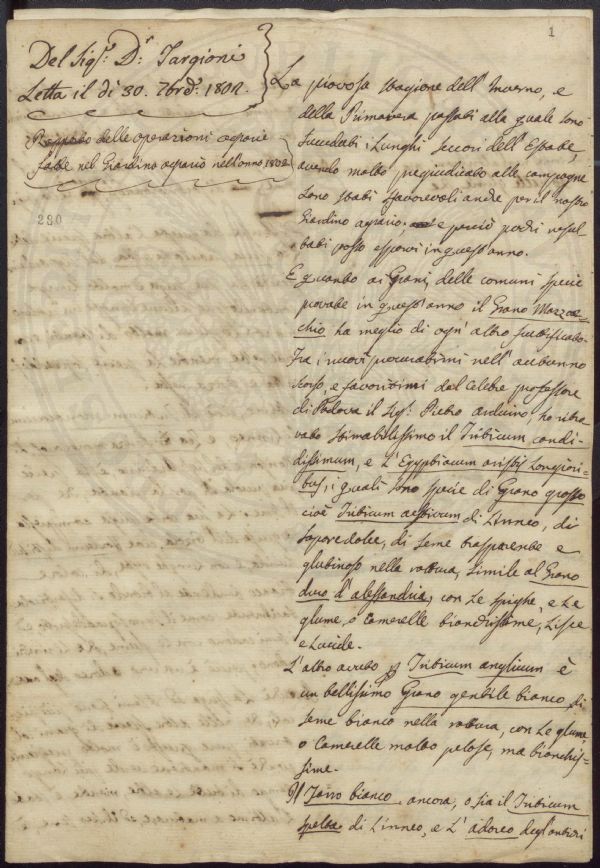 1
Del Sig.r D.r Targioni
Letta il dì 30. 7bre. 1802.
Rapporto delle operazioni agrarie
fatte nel Giardino agrario nell'anno 1802
230
La piovosa stagione dell'Inverno, e
della Primavera passati alla quale sono
succeduti i lunghi seccori dell'Estate,
avendo molto pregiudicato alle campagne
sono stati sfavorevoli anche per il nostro
Giardino agrario. e perciò pochi resul-
tati posso esporvi in quest'anno.
E quanto ai Grani, delle comuni specie
provate in quest'anno il Grano Mazzoc-
chio ha meglio di ogn'altro fruttificato.
Tra i nuovi procuratimi nell'autunno
scorso, e favoritimi dal celebre professore
di Padova il Sig.r Pietro Arduino, ho ritro
vato stimabilissimo il Triticum candi-
dissimum, e l'Egyptiacum aristis longiori-
bus, i quali sono specie di Grano grosso
cioè Triticum aestivum di Linneo, di
sapore dolce, di seme trasparente e
glutinoso nella rottura, simile al Grano
duro d'alessandria, con le spighe, e le
glume, o Camerelle bianchissime, Lisce
e Lucide.
L'altro avuto p Triticum anglicum è
un bellissimo Grano gentile bianco di
seme bianco nella rottura, con le glume
o Camerelle molto pelose, ma bianchis-
sime.
Il Farro bianco ancora, o sia il Triticum
spelta di Linneo, e l'adoreo degl'antichi